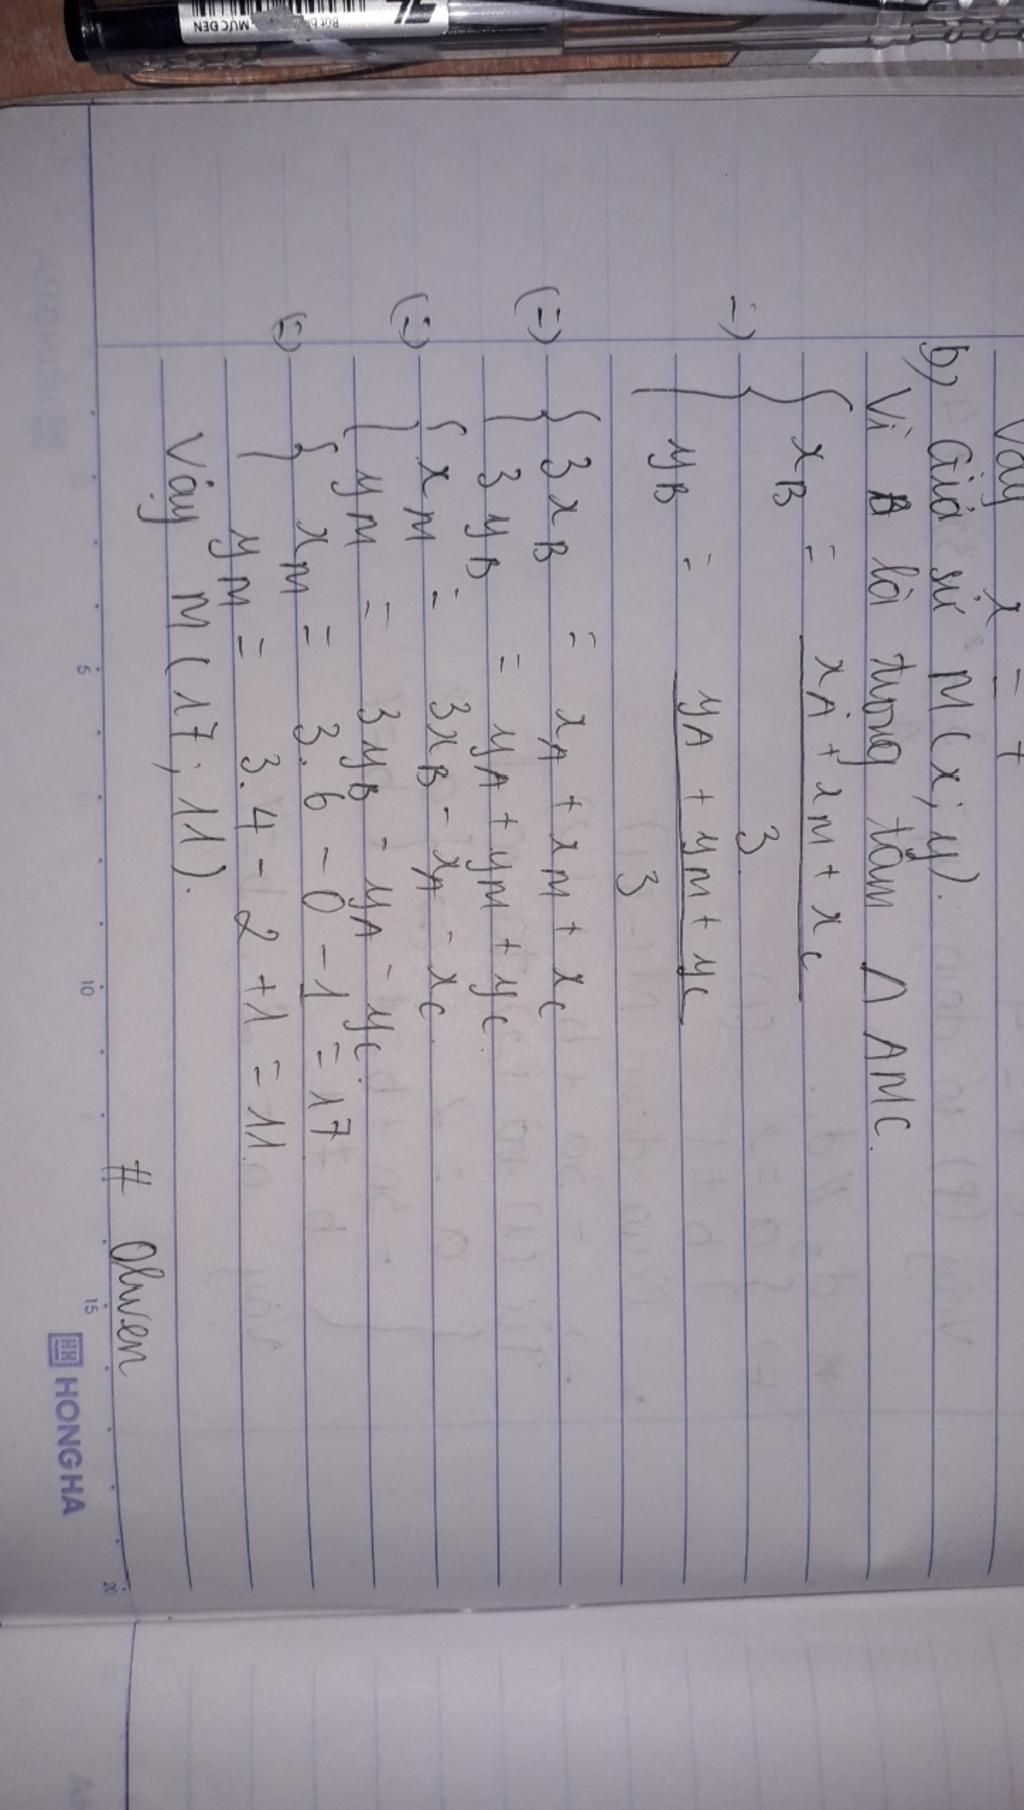 Vậy x = 7
b, Giả sử M(x; y).
Vì B là trọng tâm Δ AMC.
=) { xB = xA + xM + xC
3
yB = yA + yM + yC
3
(=) { 3xB = xA + xM + xC
3yB = yA + yM + yC
(=) { xM = 3xB - xA - xC
yM = 3yB - yA - yC
(=) { xM = 3.6 - 0 - 1 = 17
yM = 3.4 - 2 + 1 = 11
Vậy M(17; 11).
# Olwen
5 10 15 20
HONG HA
MỰC ĐEN